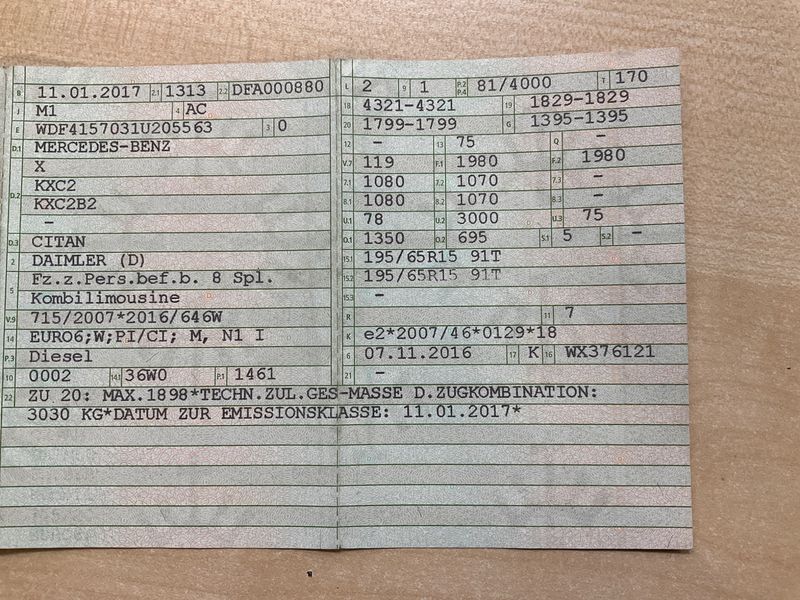 B 11.01.2017 2.1 1313 2.2 DFA000880
J M1 4 AC
E WDF4157031U205563 3 0
D.1 MERCEDES-BENZ
X
D.2 KXC2
KXC2B2
–
D.3 CITAN
2 DAIMLER (D)
5 Fz.z.Pers.bef.b. 8 Spl.
Kombilimousine
V.9 715/2007*2016/646W
14 EURO6;W;PI/CI; M, N1 I
P.3 Diesel
10 0002 14.1 36W0 P.1 1461
L 2 9 1 P.2 P.4 81/4000 T 170
18 4321-4321 19 1829-1829
20 1799-1799 G 1395-1395
12 – 13 75 Q –
V.7 119 F.1 1980 F.2 1980
7.1 1080 7.2 1070 7.3 –
8.1 1080 8.2 1070 8.3 –
U.1 78 U.2 3000 U.3 75
O.1 1350 O.2 695 S.1 5 S.2 –
15.1 195/65R15 91T
15.2 195/65R15 91T
15.3 –
R 11 7
K e2*2007/46*0129*18
6 07.11.2016 17 K 16 WX376121
21 –
22 ZU 20: MAX.1898*TECHN.ZUL.GES-MASSE D.ZUGKOMBINATION:
3030 KG*DATUM ZUR EMISSIONSKLASSE: 11.01.2017*